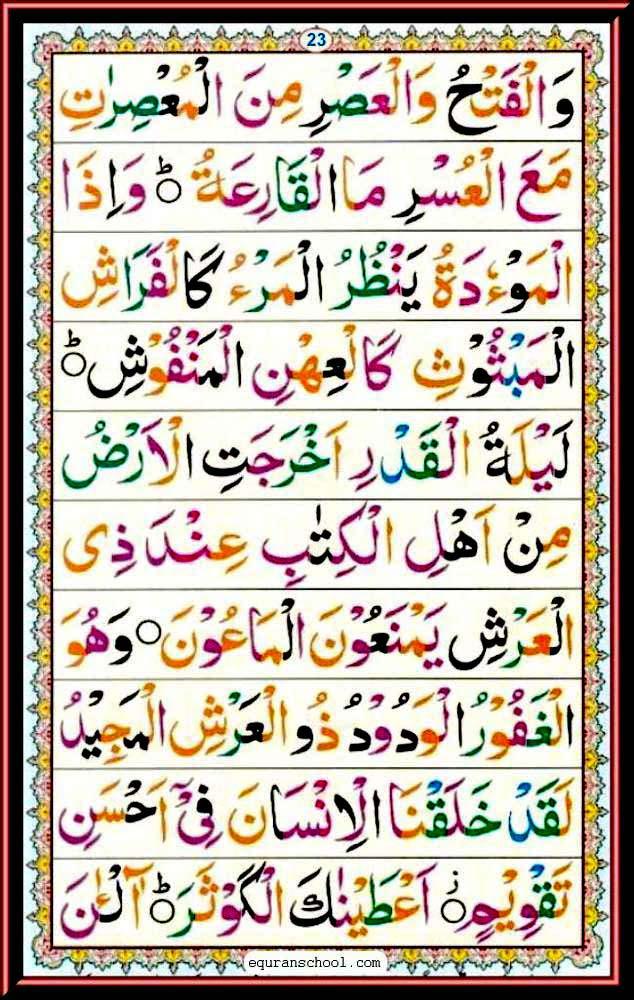 23
وَالْفَتْحُ وَالْعَصْرِ مِنَ الْمُعْصِرٰتِ
مَعَ الْعُسْرِ مَا الْقَارِعَةُ ۝ؕ وَاِذَا
الْمَوْءٗدَةُ يَنْظُرُ الْمَرْءُ كَالْفَرَاشِ
الْمَبْثُوْثِ كَالْعِهْنِ الْمَنْفُوْشِ ۝ؕ
لَيْلَةُ الْقَدْرِ اَخْرَجَتِ الْاَرْضُ
مِنْ اَهْلِ الْكِتٰبِ عِنْدَ ذِى
الْعَرْشِ يَمْنَعُوْنَ الْمَاعُوْنَ ۝ وَهُوَ
الْغَفُوْرُ الْوَدُوْدُ ذُو الْعَرْشِ الْمَجِيْدُ
لَقَدْ خَلَقْنَا الْاِنْسَانَ فِىْٓ اَحْسَنِ
تَقْوِيْمٍ ۝ز اَعْطَيْنٰكَ الْكَوْثَرَ ۝ؕ آٰلْـٰٔنَ
equranschool.com